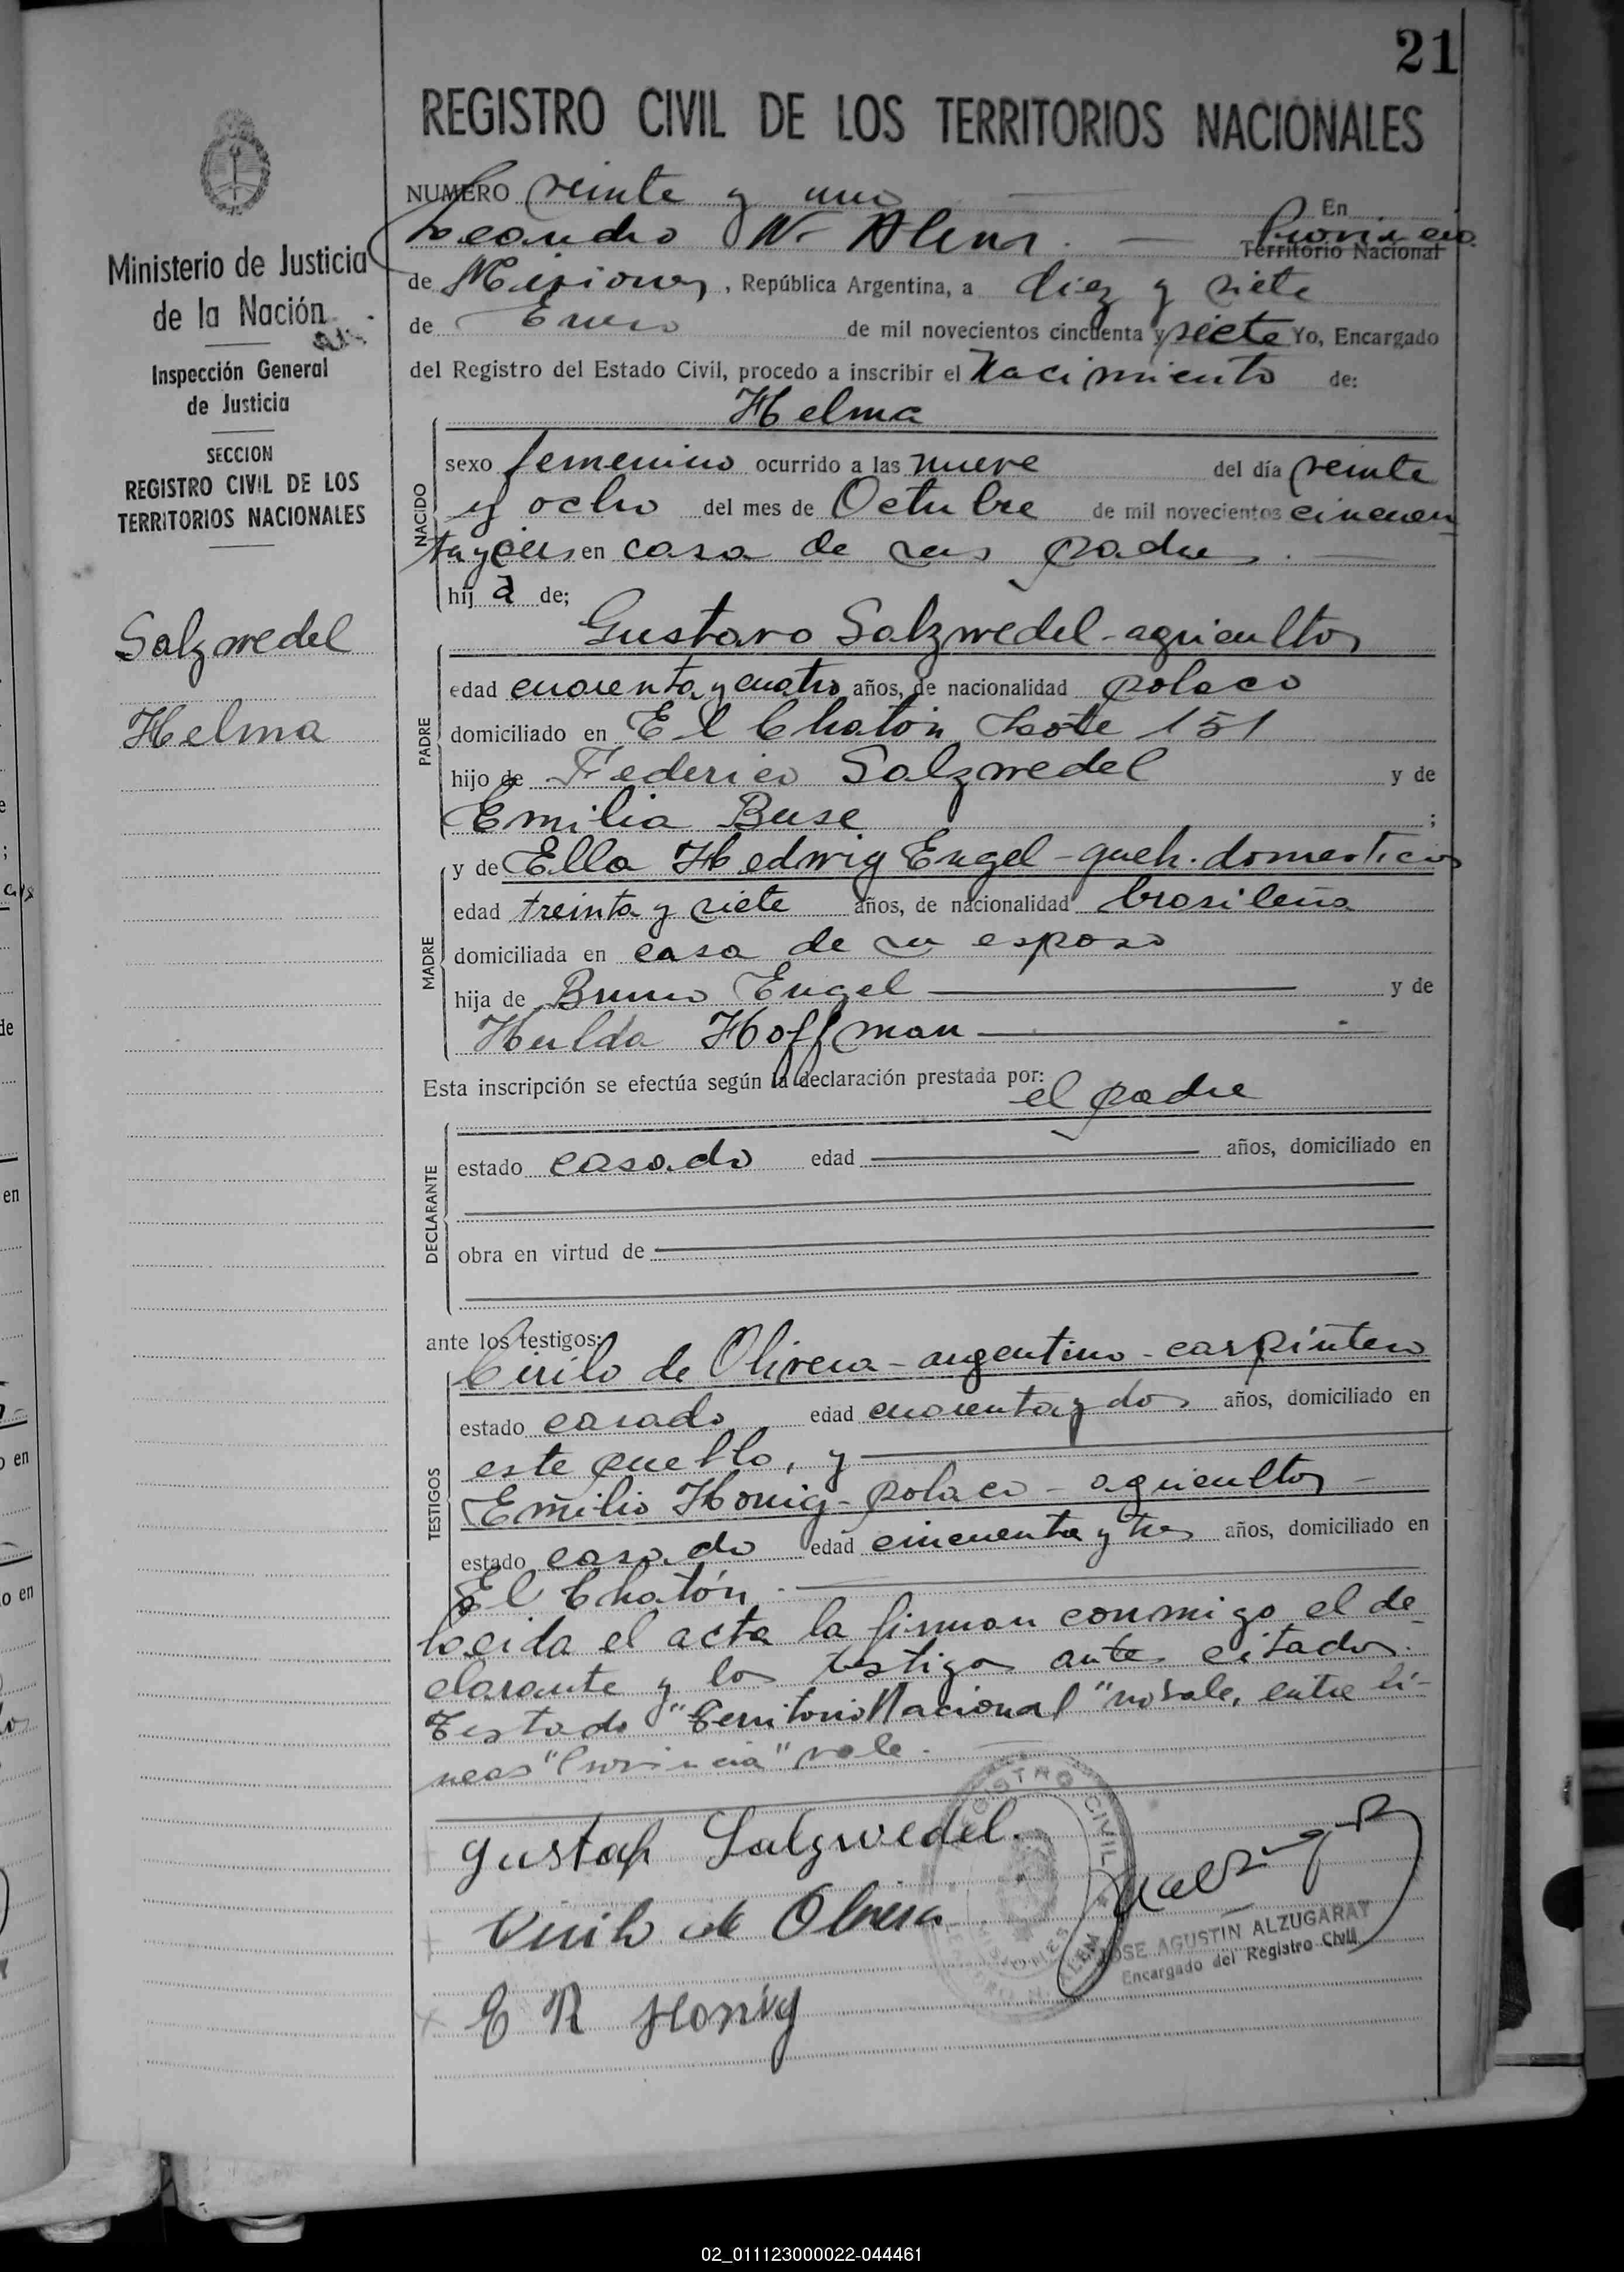 21
REGISTRO CIVIL DE LOS TERRITORIOS NACIONALES
NUMERO veinte y uno En
Leandro N. Alem. Provincia
Territorio Nacional
de Misiones, República Argentina, a diez y siete
de Enero de mil novecientos cincuenta y siete Yo, Encargado
del Registro del Estado Civil, procedo a inscribir el Nacimiento de:
Helma
NACIDO
sexo femenino ocurrido a las nueve del día veinte
y ocho del mes de Octubre de mil novecientos cincuen
ta y seis en casa de sus padres.
hij a de;
PADRE
Gustavo Salzwedel - agricultor
edad cuarenta y cuatro años, de nacionalidad polaco
domiciliado en El Chatón Lote 151
hijo de Federico Salzwedel y de
Emilia Buse ;
MADRE
y de Ella Hedwig Engel - queh. domesticos
edad treinta y siete años, de nacionalidad brasileña
domiciliada en casa de su esposo
hija de Bruno Engel y de
Hulda Hoffman
Esta inscripción se efectúa según la declaración prestada por:
el padre
DECLARANTE
estado casado edad años, domiciliado en
obra en virtud de
ante los testigos:
TESTIGOS
Cirilo de Olivera - argentino - carpintero
estado casado edad cuarenta y dos años, domiciliado en
este pueblo, y
Emilio Honig - polaco - agricultor -
estado casado edad cincuenta y tres años, domiciliado en
El Chatón.
Leida el acta la firman conmigo el de-
clarante y los testigos antes citados.
Testado "Territorio Nacional" no vale, entre lí-
neas "Provincia" vale.
Gustaf Salzwedel.
Cirilo de Olivera
E R Honig
REGISTRO CIVIL
MISIONES
LEANDRO N. ALEM
JOSE AGUSTIN ALZUGARAY
Encargado del Registro Civil
Ministerio de Justicia
de la Nación
Inspección General
de Justicia
SECCION
REGISTRO CIVIL DE LOS
TERRITORIOS NACIONALES
Salzwedel
Helma
02_011123000022-044461